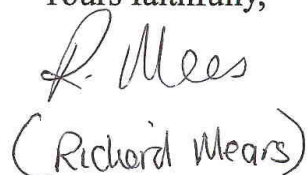 Yours faithfully,
R. Mees
(Richard Mears)